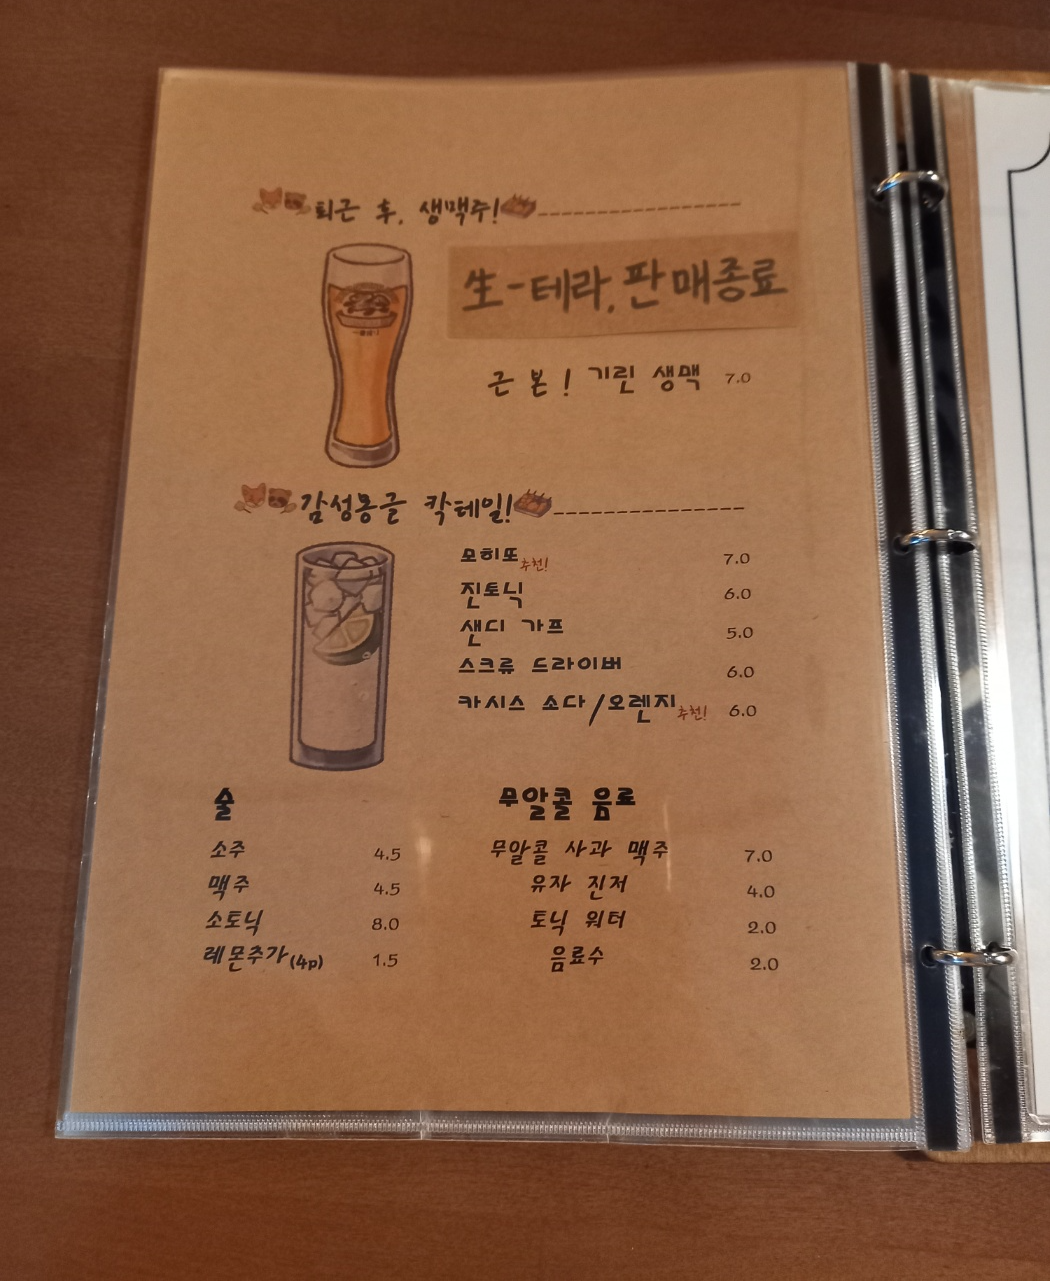 퇴근 후, 생맥주!
生-테라, 판매종료
근 본! 기린 생맥 7.0
감성몽글 칵테일!
모히또 추천! 7.0
진토닉 6.0
샌디 가프 5.0
스크류 드라이버 6.0
카시스 소다/오렌지 추천! 6.0
술
소주 4.5
맥주 4.5
소토닉 8.0
레몬추가(4p) 1.5
무알콜 음료
무알콜 사과 맥주 7.0
유자 진저 4.0
토닉 워터 2.0
음료수 2.0